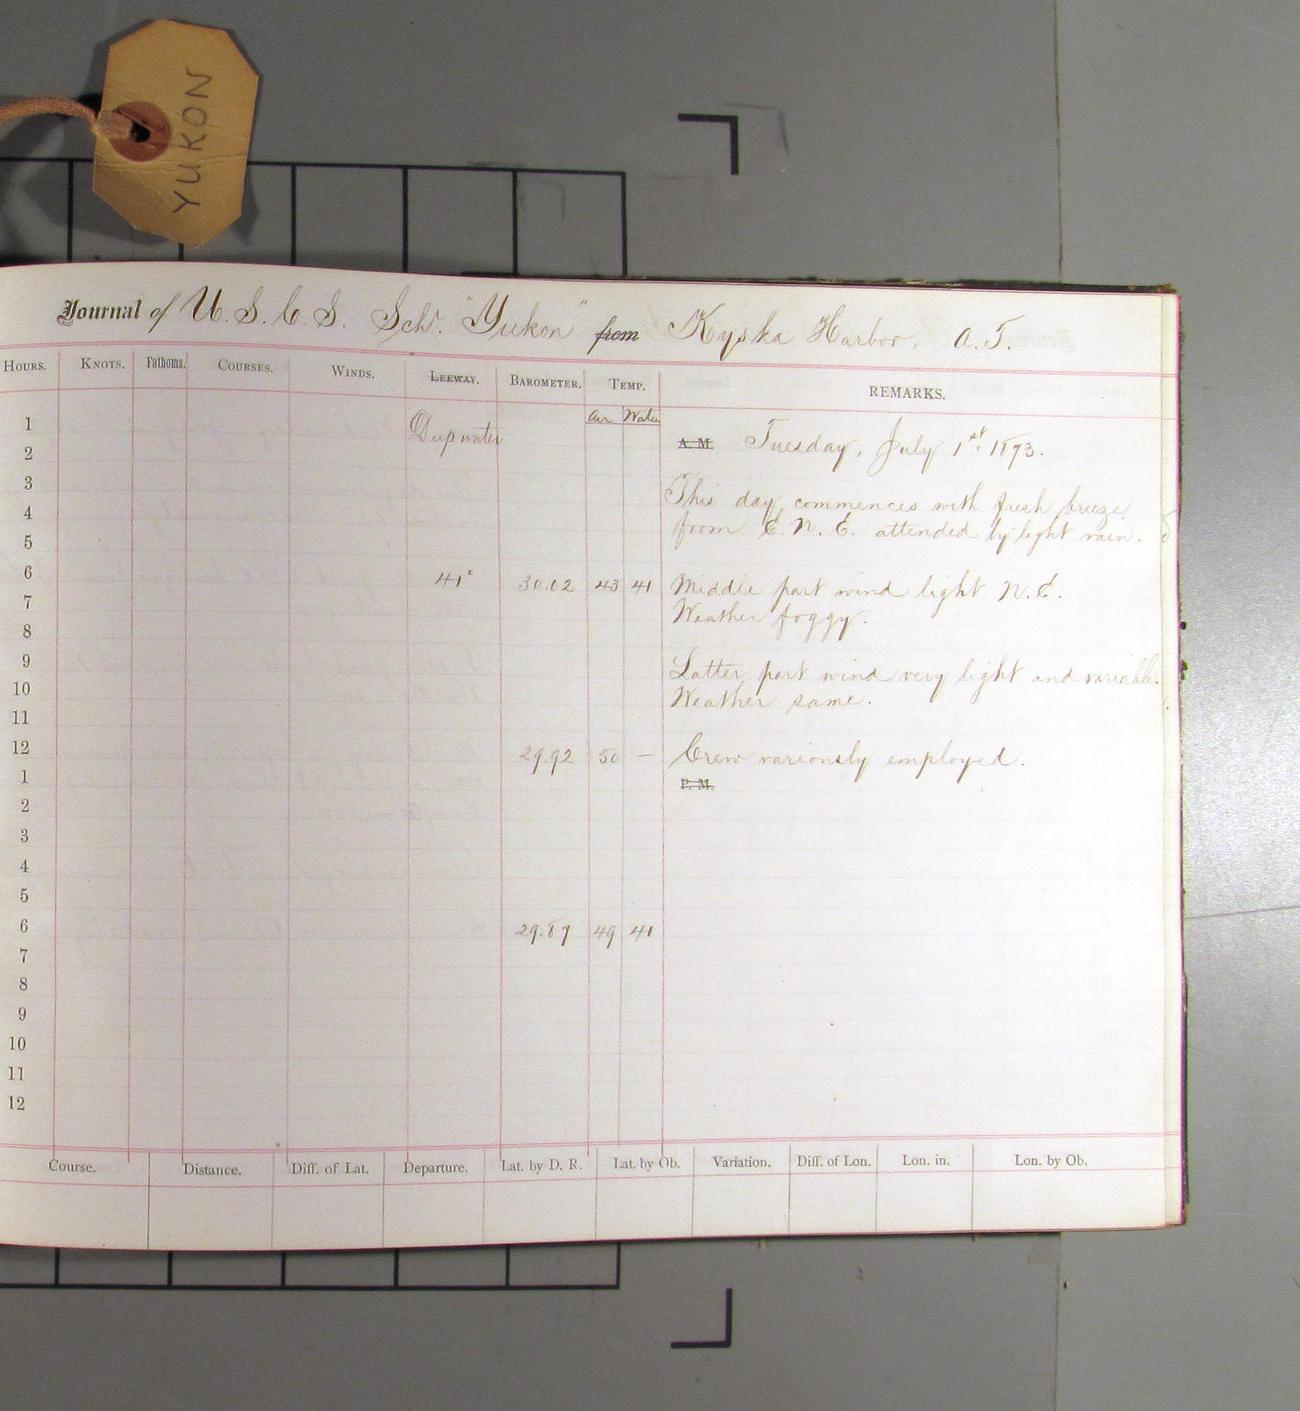 YUKON
Journal of U. S. C. S. Schr. "Yukon" from Kyska Harbor, A. T.
HOURS. KNOTS. Fathoms. COURSES. WINDS. LEEWAY. BAROMETER. TEMP. REMARKS.
Air Water
1 Deep water A.M. Tuesday, July 1st 1873.
2
3 This day commences with fresh breeze
4 from E. N. E. attended by light rain.
5
6 41° 30.02 43 41 Middle part wind light N. E.
7 Weather foggy.
8
9 Latter part wind very light and variable.
10 Weather same.
11
12 29.92 50 — Crew variously employed.
1 P. M.
2
3
4
5
6 29.87 49 41
7
8
9
10
11
12
Course. Distance. Diff. of Lat. Departure. Lat. by D. R. Lat. by Ob. Variation. Diff. of Lon. Lon. in. Lon. by Ob.